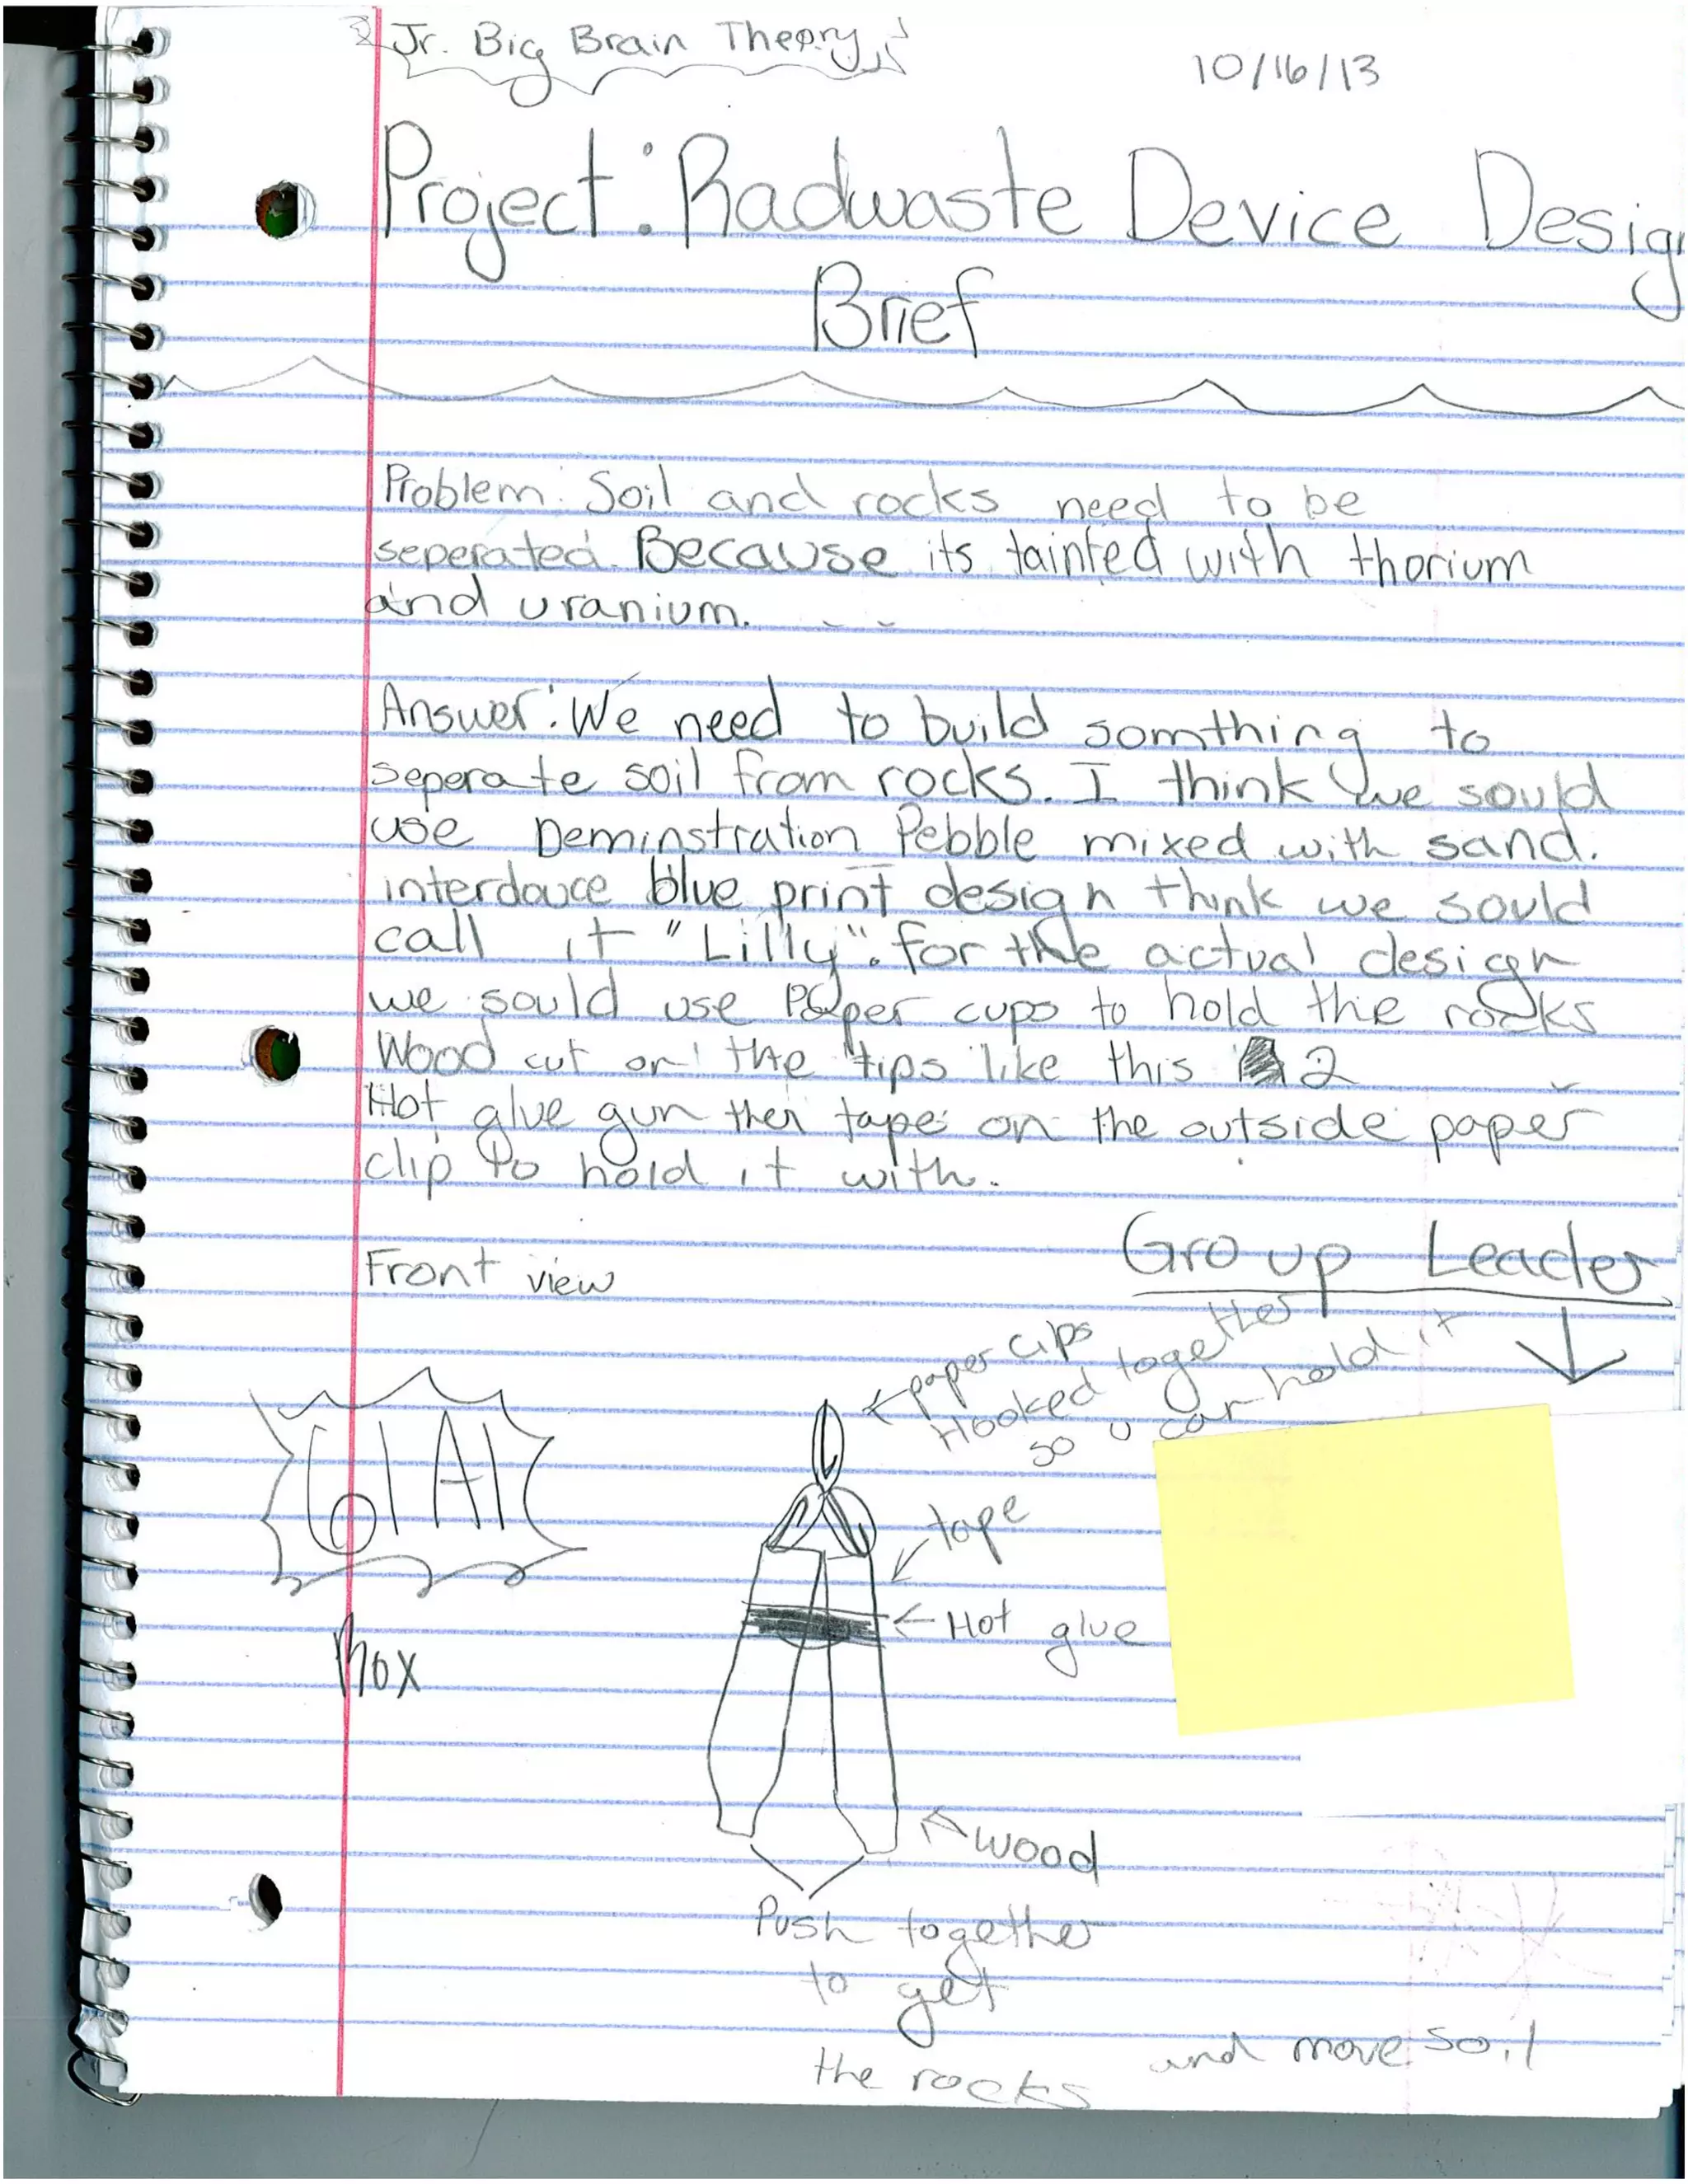 Jr. Big Brain Theory
10/16/13
Project: Radwaste Device Desig
Brief
Problem: Soil and rocks need to be
seperated. Because its tainted with thorium
and uranium.
Answer: We need to build somthing to
seperate soil from rocks. I think we sould
use Deminstration Pebble mixed with sand.
interdouce blue print design think we sould
call it "Lilly". for the actual design
we sould use Paper cups to hold the rocks
Wood cut on the tips like this 2
Hot glue gun then tape on the outside paper
clip to hold it with.
Front view
Group Leader
paper clips
Hooked together
so u can hold it
tape
Hot glue
wood
Push together
to get
the rocks and move soil